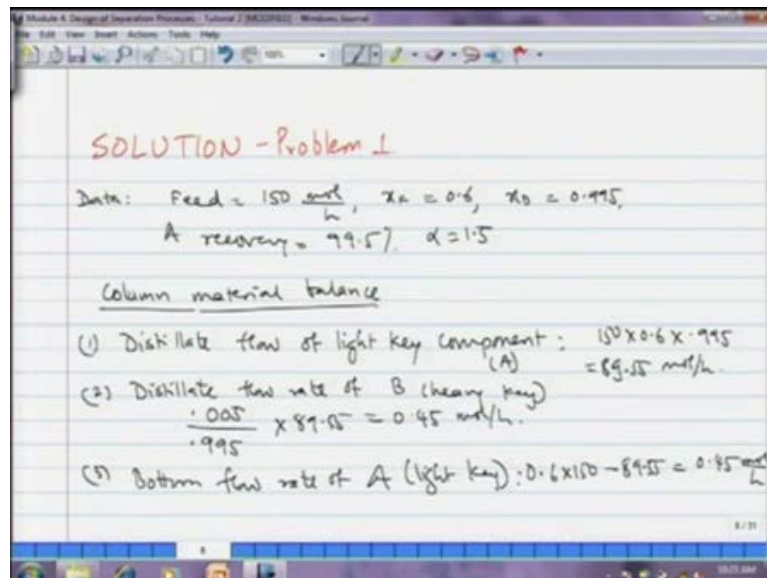 Module 4. Design of Separation Processes - Tutorial 2 [MODIFIED] - Windows Journal
File Edit View Insert Actions Tools Help
SOLUTION - Problem 1
Data: Feed = 150 mol/h, xF = 0.6, xD = 0.995,
A recovery = 99.5% α = 1.5
Column material balance
(1) Distillate flow of light key component : 150 x 0.6 x .995
(A) = 89.55 mol/h.
(2) Distillate flow rate of B (heavy key)
.005/.995 x 89.55 = 0.45 mol/h.
(3) Bottom flow rate of A (light key) : 0.6x150 - 89.55 = 0.45 mol/h
8 / 31
8
10:25 AM